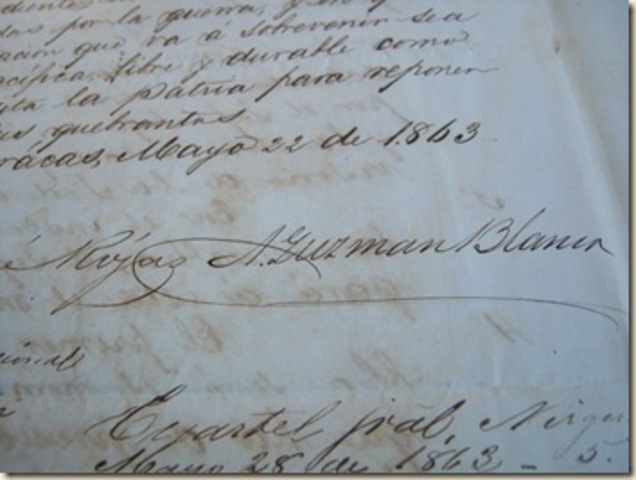 das por la guerra, y en q
ación que va á sobrevenir sea
acífica, libre y durable como
ita la pátria para reponer
sus quebrantos.
rácas, Mayo 22 de 1.863
é Rójas A. Guzman Blanco
Cuartel jrál, Nirgu
Mayo 28 de 1863 - 5.